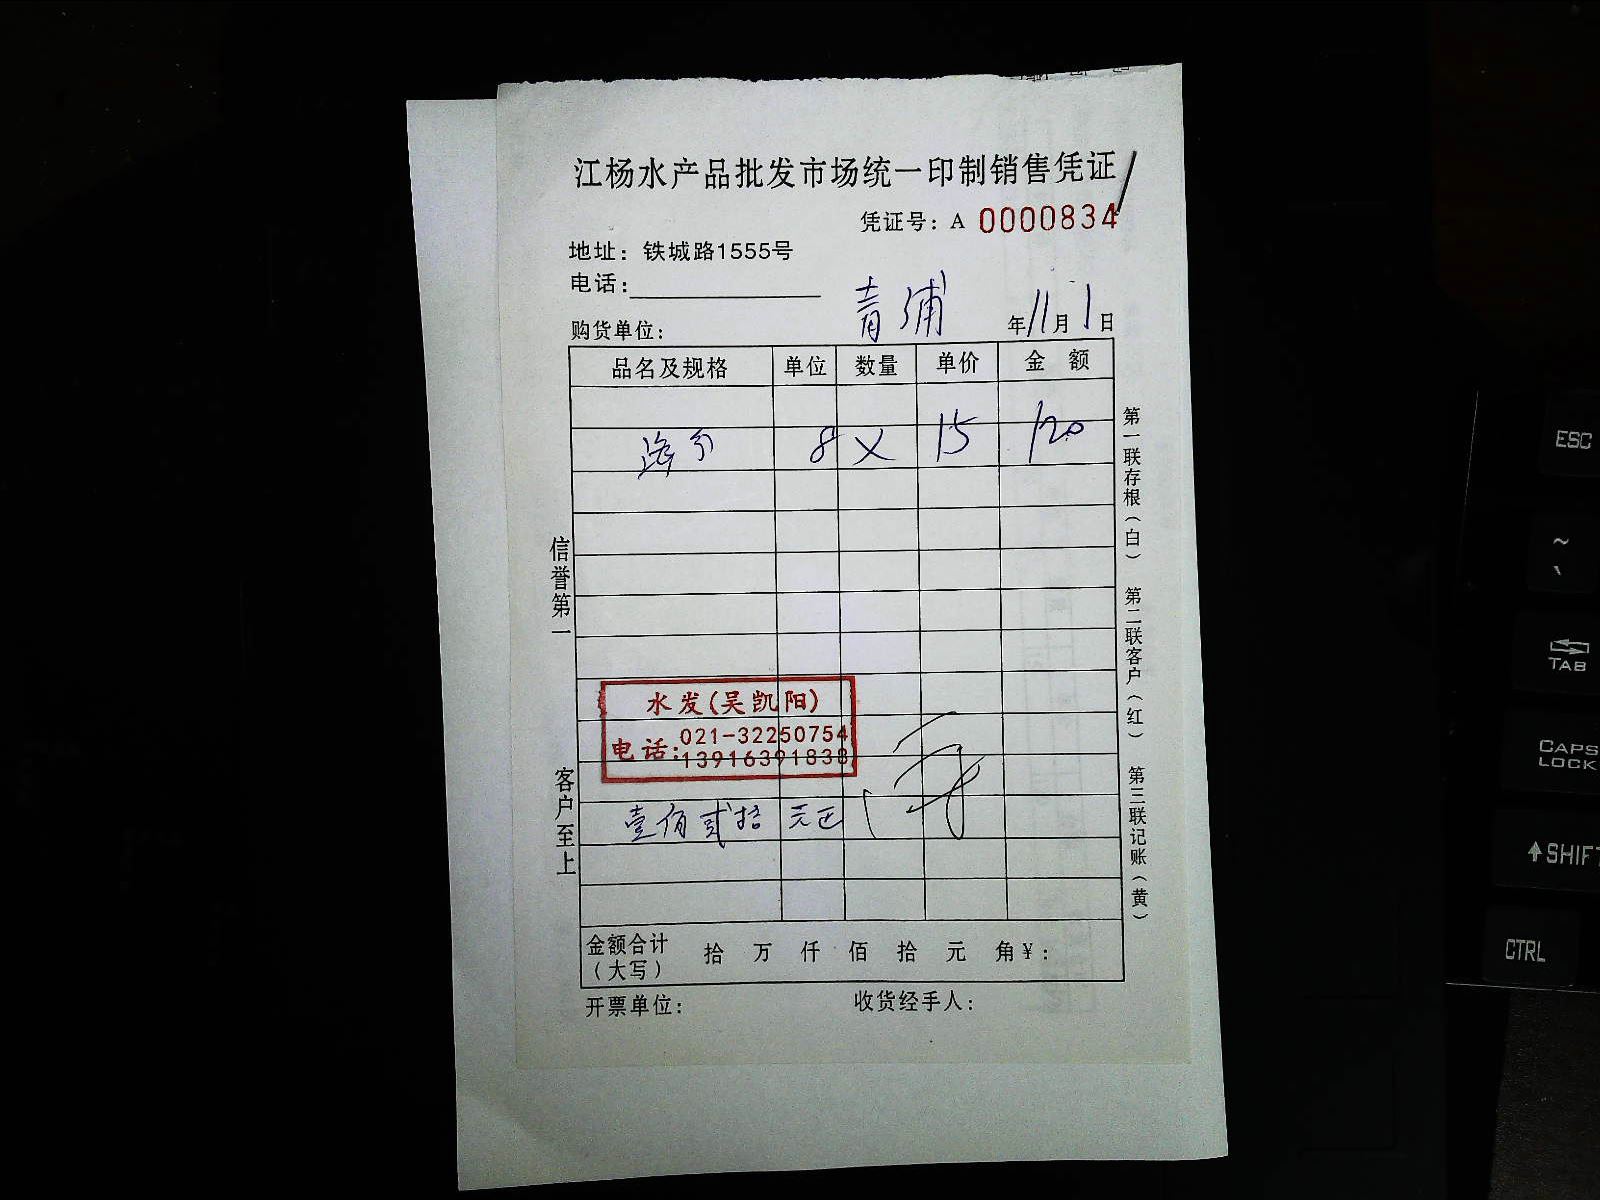 江杨水产品批发市场统一印制销售凭证
凭证号：A 0000834
地址：铁城路1555号
电话：
青浦
购货单位： 年11月1日
品名及规格 单位 数量 单价 金 额
8 X 15 120
水发(吴凯阳)
电话：021-32250754
13916391838
壹佰贰拾元正
金额合计（大写） 拾 万 仟 佰 拾 元 角¥：
开票单位： 收货经手人：
信誉第一 客户至上
第一联存根（白） 第二联客户（红） 第三联记账（黄）
ESC
~
TAB
CAPS LOCK
SHIFT
CTRL